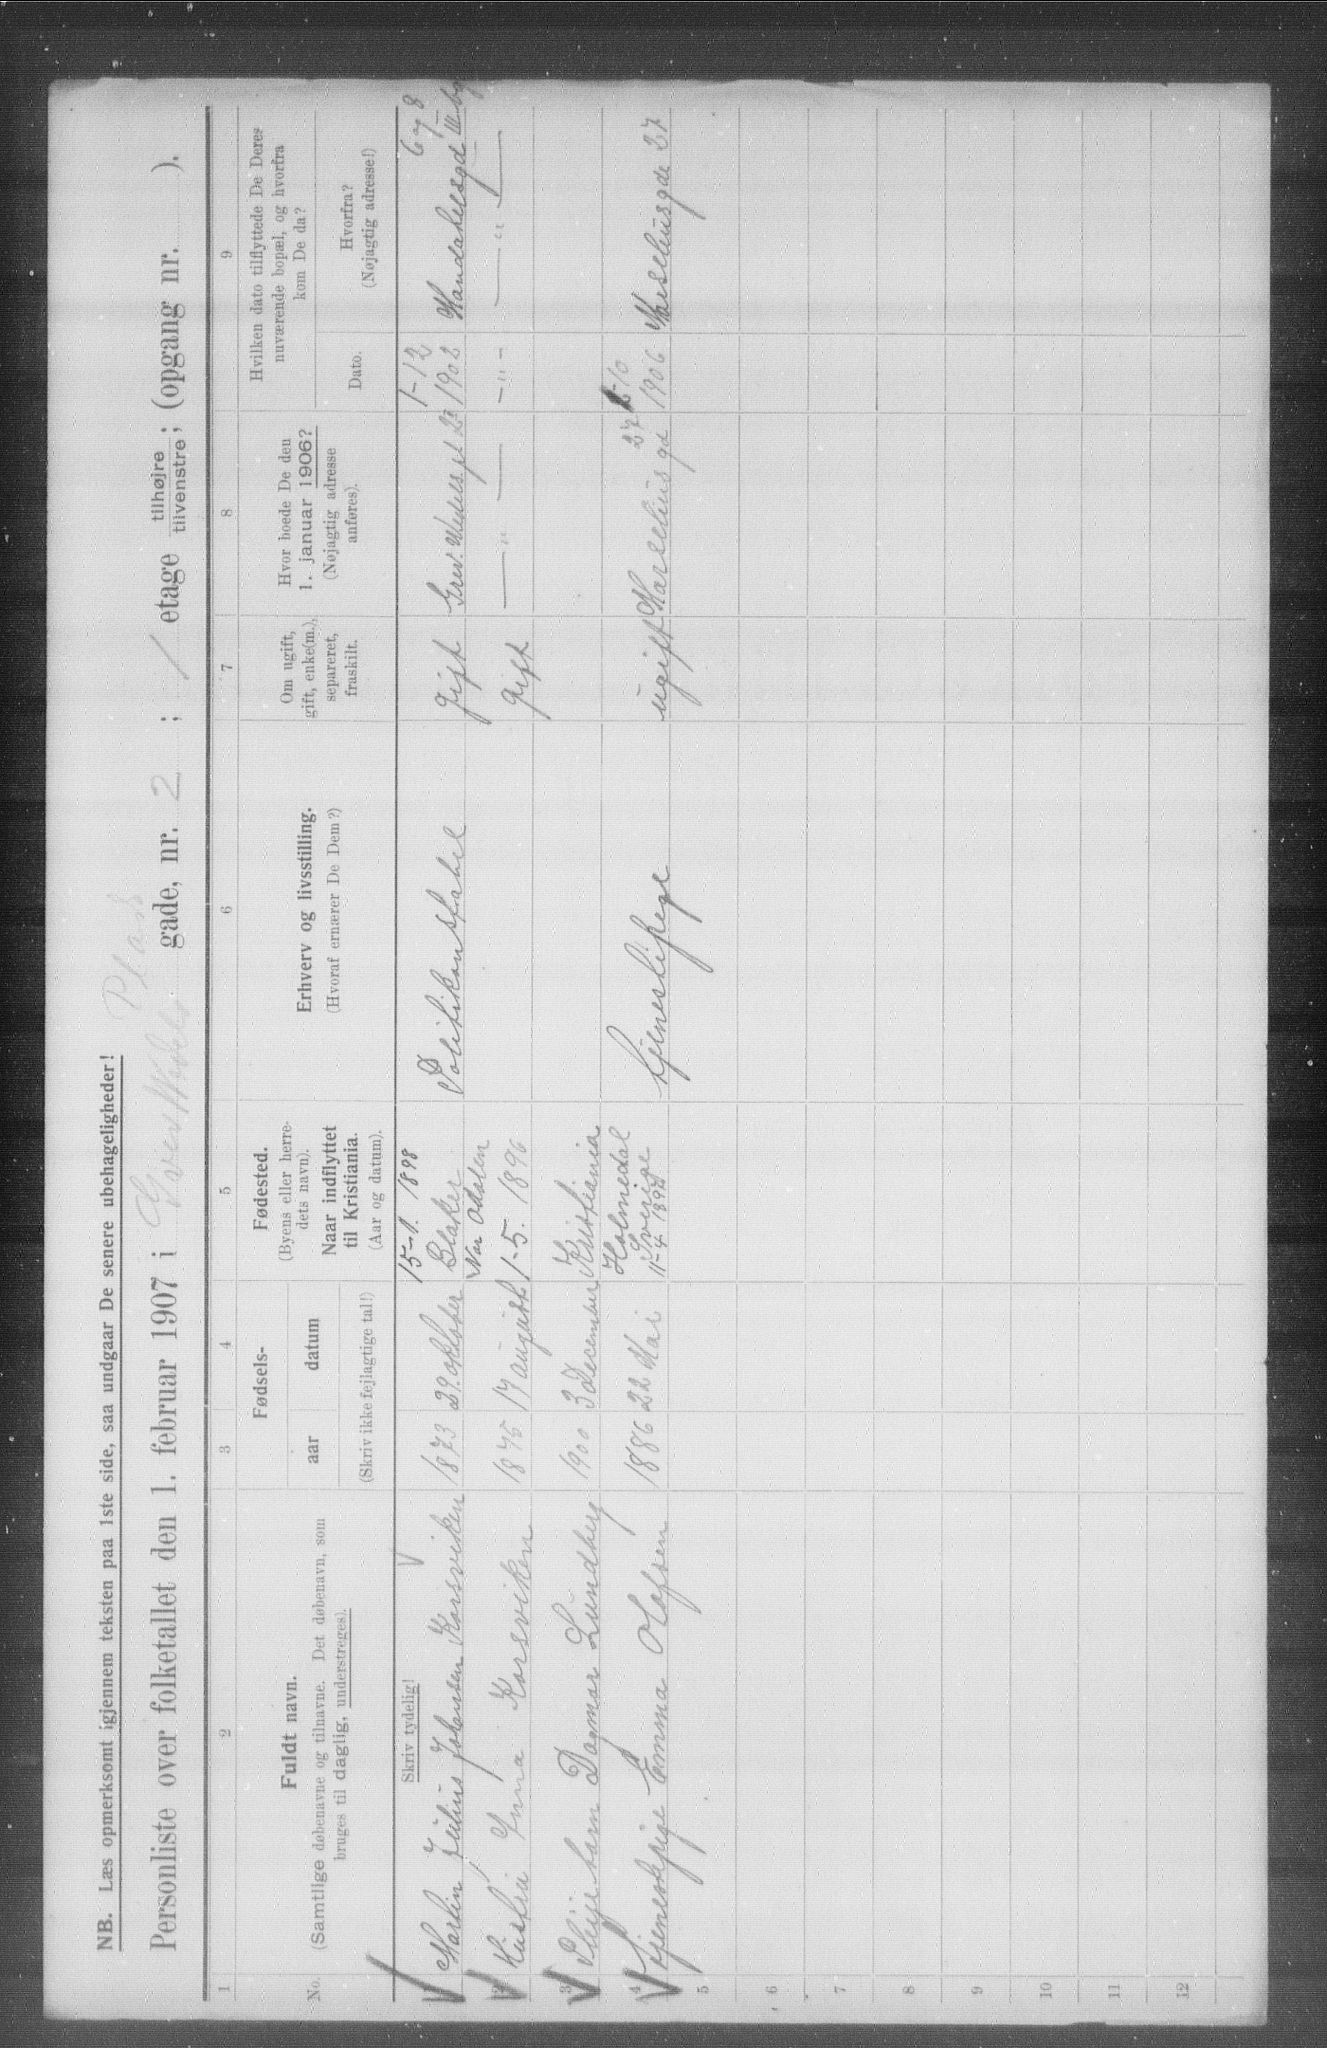 NB. Læs opmerksomt igjennem teksten paa 1ste side, saa undgaar De senere ubehageligheder!
Plads
Personliste over folketallet den 1. februar 1907 i Grev Wedels gade, nr. 2 ; 1 etage tilhøjre tilvenstre; (opgang nr. ).
1 2 3 4 5 6 7 8 9
No.
Fuldt navn.
(Samtlige døbenavne og tilnavne. Det døbenavn, som
bruges til daglig, understreges).
Fødsels-
aar datum
(Skriv ikke fejlagtige tal!)
Fødested.
(Byens eller herre-
dets navn).
Naar indflyttet
til Kristiania.
(Aar og datum).
Erhverv og livsstilling.
(Hvoraf ernærer De Dem?)
Om ugift,
gift, enke(m.),
separeret,
fraskilt.
Hvor boede De den
1. januar 1906?
(Nøjagtig adresse
anføres).
Hvilken dato tilflyttede De Deres
nuværende bopæl, og hvorfra
kom De da?
Dato.
Hvorfra?
(Nøjagtig adresse!)
Skriv tydelig!
15-1. 1898 1-12 678
Martin Julius Johansen Korsviken 1873 29 oktober Blaker Politikonstabel gift Grev. Wedels pl. 2 1902
Nor Odalen
2 Hustru Inna Korsviken 1875 17 august 1-5. 1896 gift — " — - " -  — " —
3 Pleiebarn Dagmar Lundberg 1900 3 December Kristiania
Holmedal 27 1-10
4 Tjenestepige Emma Olafsen 1886 22 Mai Sverige tjenestepige ugift Marselius gd 1906 Marseliusgde 27
11-4
5
6
7
8
9
10
11
12